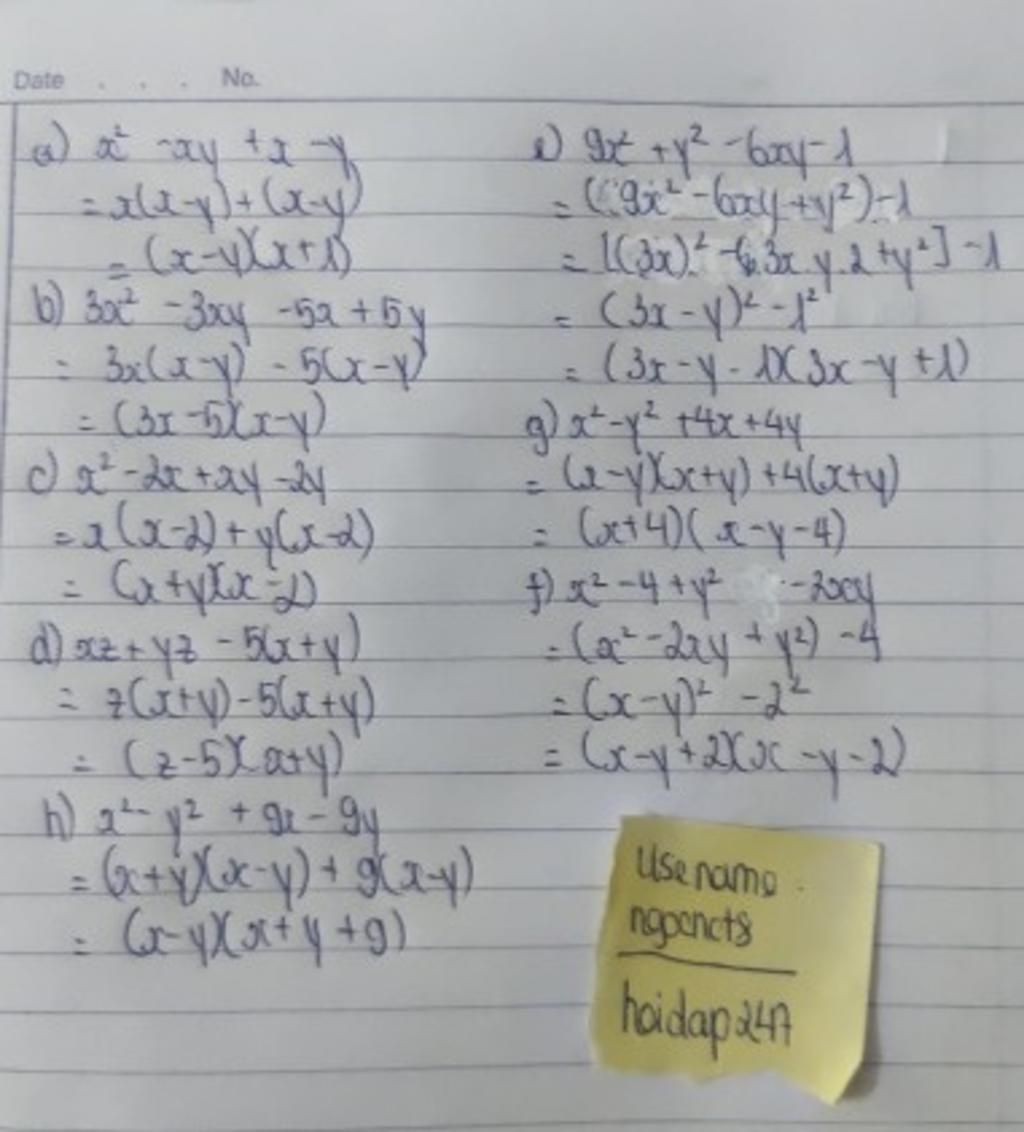 Date . . . No.
a) x² -xy +x -y
= x(x-y)+(x-y)
= (x-y)(x+1)
b) 3x² -3xy -5x +5y
= 3x(x-y) -5(x-y)
= (3x-5)(x-y)
c) x² -2x+xy-2y
= x(x-2)+y(x-2)
= (x+y)(x-2)
d) xz+yz -5(x+y)
= z(x+y)-5(x+y)
= (z-5)(x+y)
h) x²- y² + 9x - 9y
= (x+y)(x-y)+9(x-y)
= (x-y)(x+y+9)
e) 9x² +y² -6xy-1
= (9x² -6xy+y²)-1
= [(3x)² -6.3x.y.2+y²] -1
= (3x-y)² -1²
= (3x-y-1)(3x-y+1)
g) x²-y² +4x+4y
= (x-y)(x+y)+4(x+y)
= (x+4)(x-y-4)
f) x² -4+y² -2xy
= (x² -2xy + y²) -4
= (x-y)² -2²
= (x-y+2)(x-y-2)
Usename
ngocncts
hoidap247